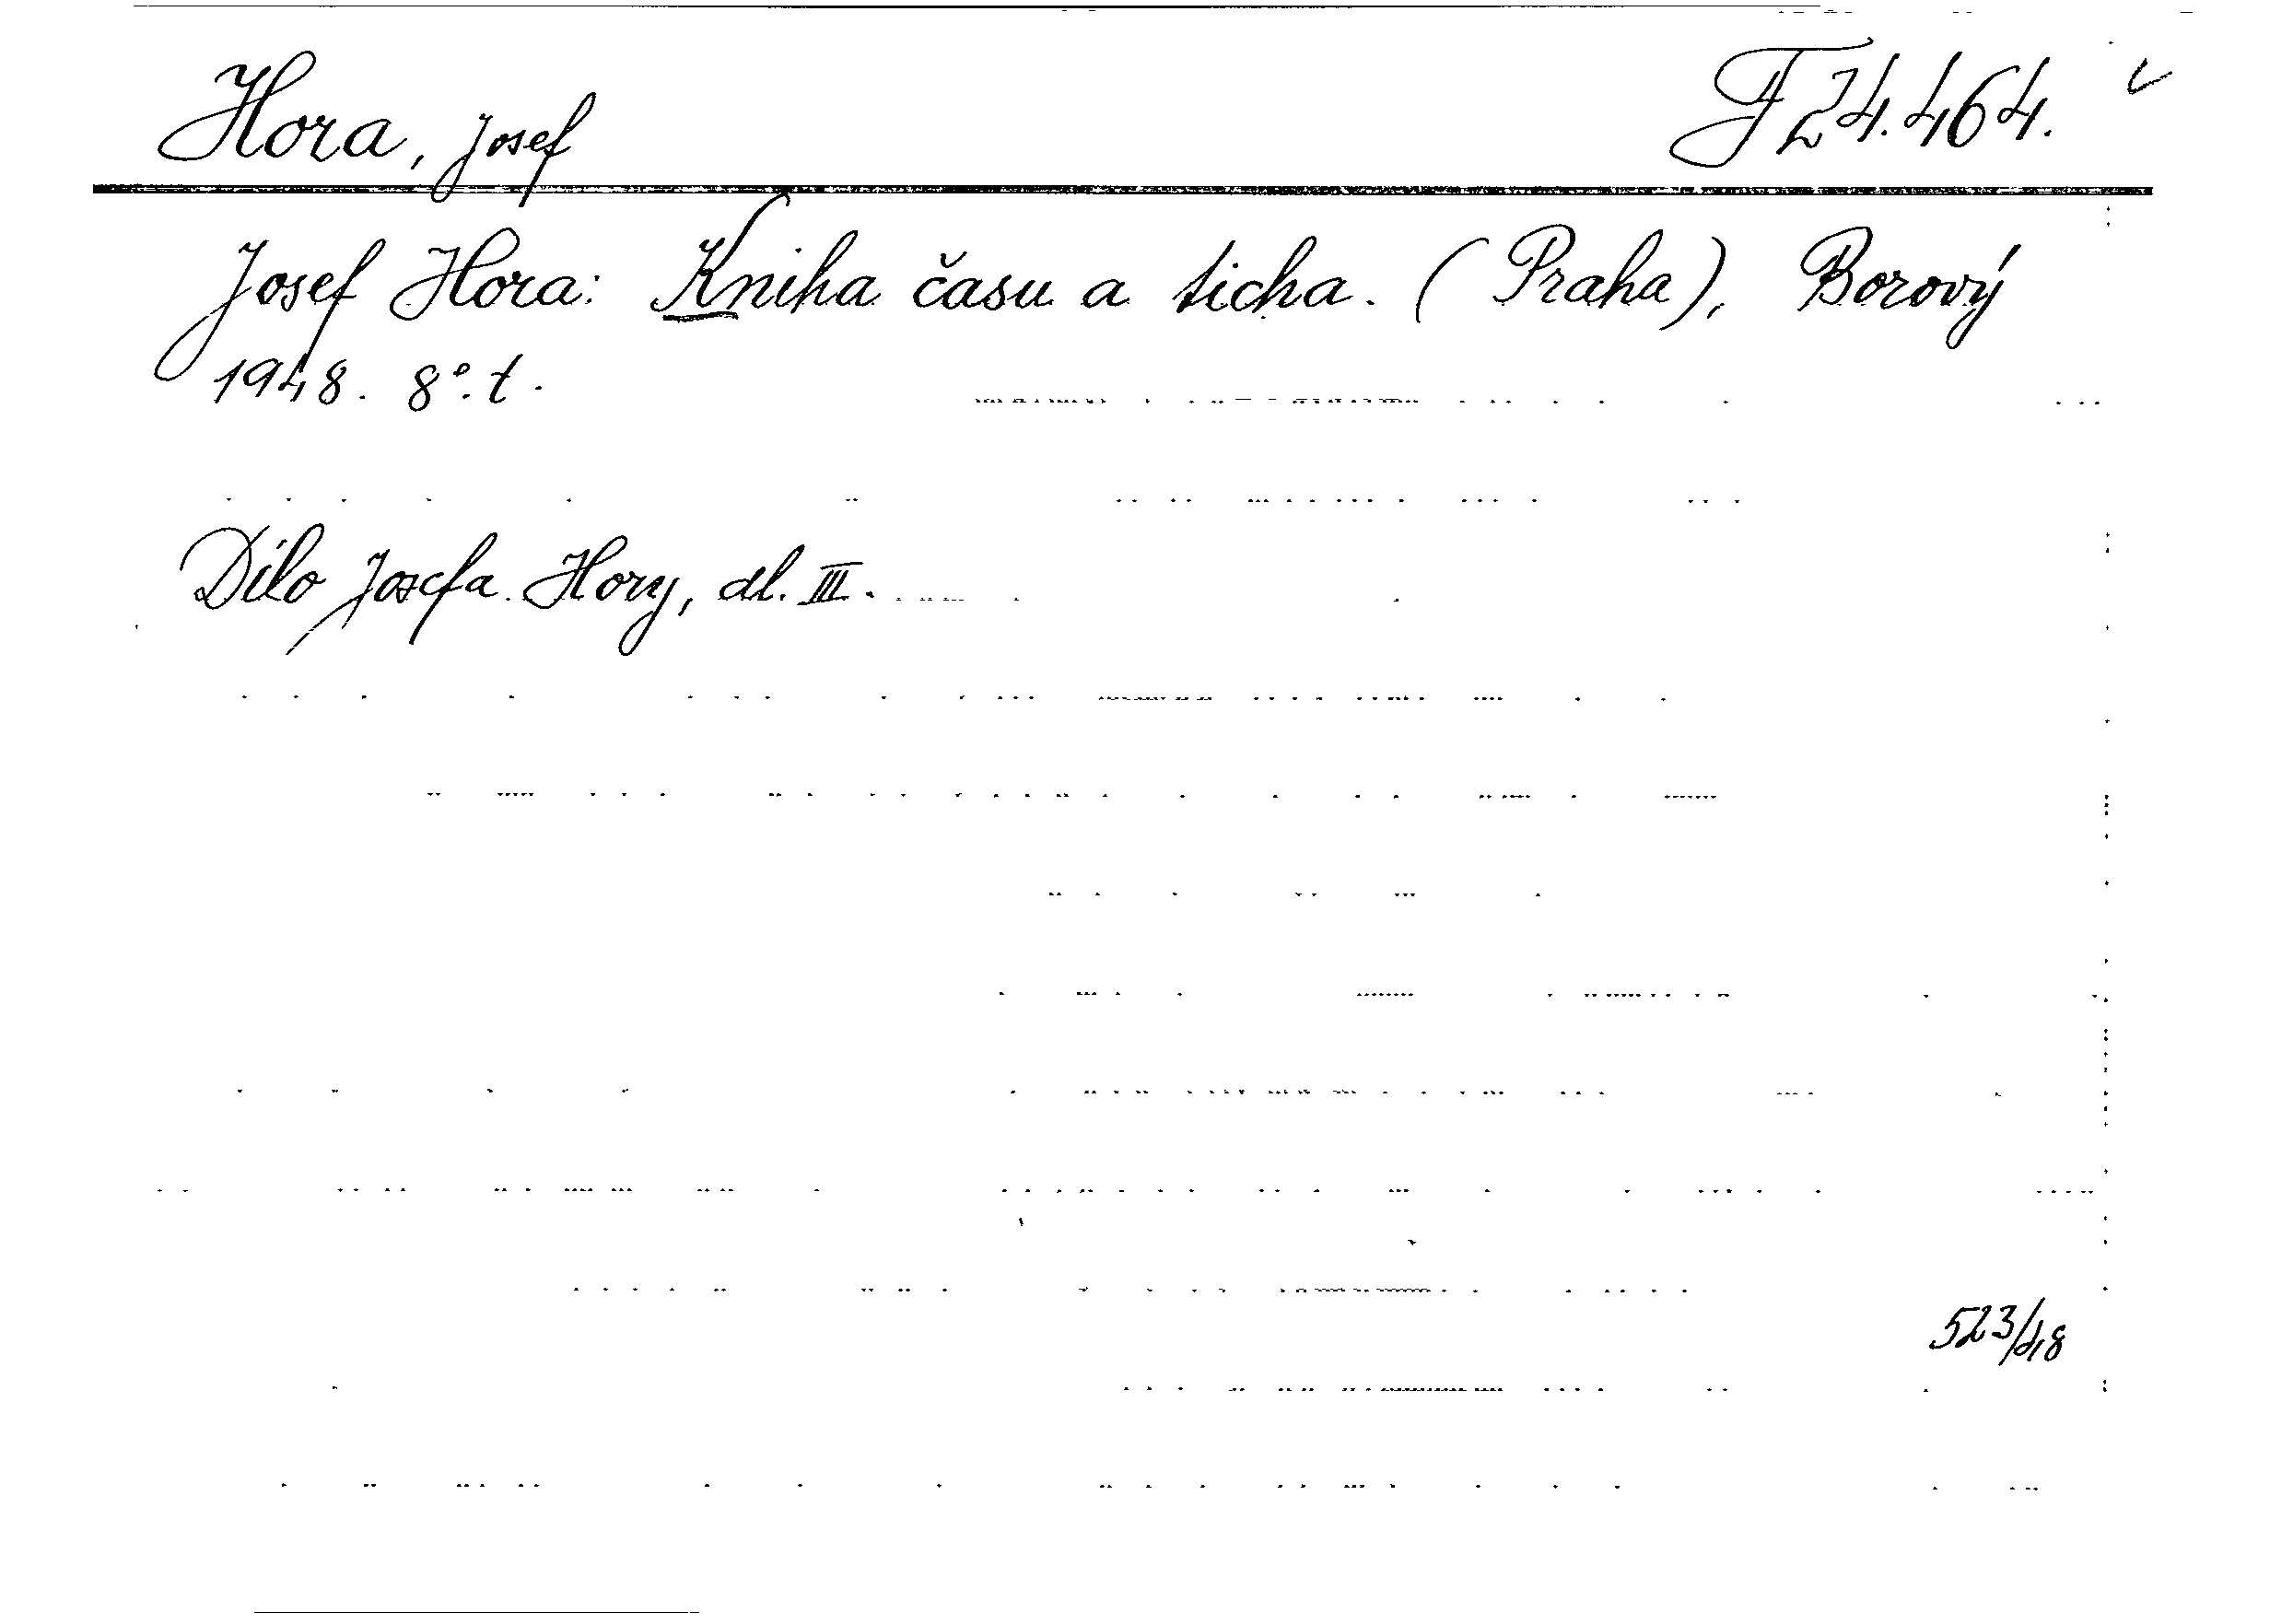 Hora, Josef F 24.464.
Josef Hora: Kniha času a ticha. (Praha), Borový
1948. 8°. t.
Dílo Josefa Hory, dl. III.
523/48